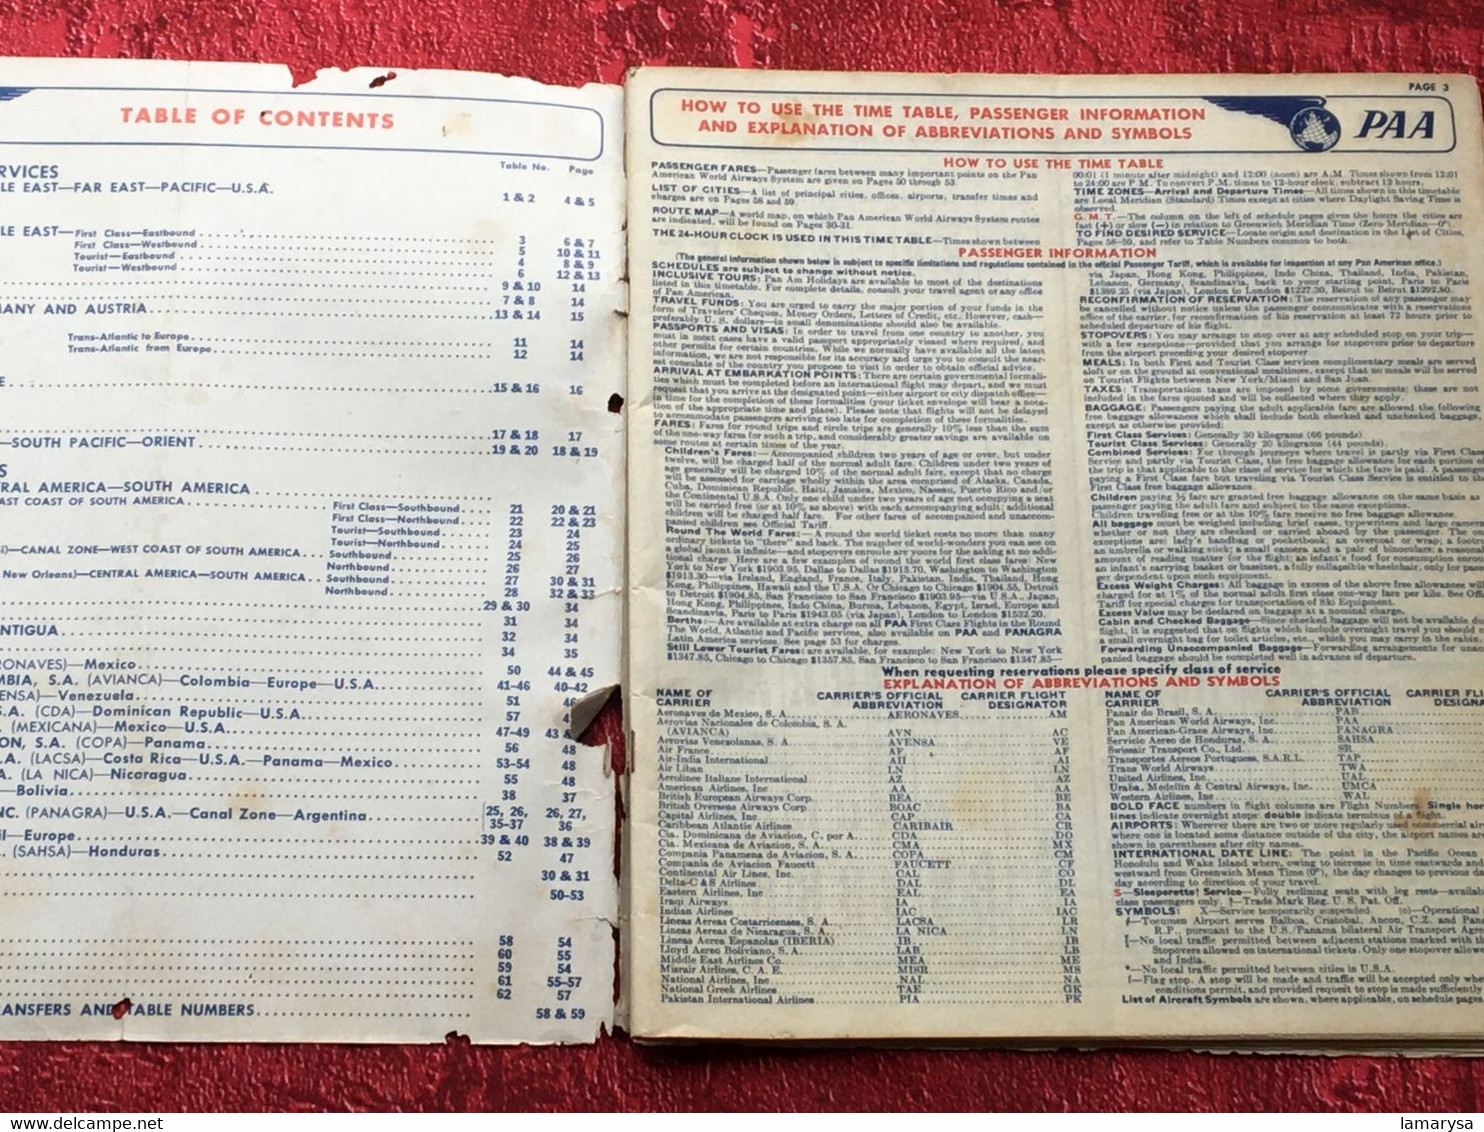 TABLE OF CONTENTS
Table No. Page
RVICES
LE EAST—FAR EAST—PACIFIC—U.S.A.
1 & 2 4 & 5
LE EAST—First Class—Eastbound 3 6 & 7
First Class—Westbound 5 10 & 11
Tourist—Eastbound 4 8 & 9
Tourist—Westbound 6 12 & 13
9 & 10 14
7 & 8 14
ANY AND AUSTRIA 13 & 14 15
Trans-Atlantic to Europe 11 14
Trans-Atlantic from Europe 12 14
15 & 16 16
17 & 18 17
—SOUTH PACIFIC—ORIENT 19 & 20 18 & 19
S
RAL AMERICA—SOUTH AMERICA
AST COAST OF SOUTH AMERICA First Class—Southbound 21 20 & 21
First Class—Northbound 22 22 & 23
Tourist—Southbound 23 24
Tourist—Northbound 24 25
—CANAL ZONE—WEST COAST OF SOUTH AMERICA Southbound 25 26
Northbound 26 27
New Orleans)—CENTRAL AMERICA—SOUTH AMERICA Southbound 27 30 & 31
Northbound 28 32 & 33
29 & 30 34
31 34
NTIGUA 32 34
34 35
RONAVES)—Mexico 50 44 & 45
MBIA, S.A. (AVIANCA)—Colombia—Europe—U.S.A. 41-46 40-42
ENSA)—Venezuela 51 46
S.A. (CDA)—Dominican Republic—U.S.A. 57
(MEXICANA)—Mexico—U.S.A. 47-49 43 &
ON, S.A. (COPA)—Panama 56 48
.A. (LACSA)—Costa Rica—U.S.A.—Panama—Mexico 53-54 48
A. (LA NICA)—Nicaragua 55 48
—Bolivia 38 37
NC. (PANAGRA)—U.S.A.—Canal Zone—Argentina 25, 26, 35-37 26, 27, 36
il—Europe 39 & 40 38 & 39
. (SAHSA)—Honduras 52 47
30 & 31
50-53
58 54
60 55
59 54
61 55-57
62 57
ANSFERS AND TABLE NUMBERS 58 & 59
PAGE 3
HOW TO USE THE TIME TABLE, PASSENGER INFORMATION
AND EXPLANATION OF ABBREVIATIONS AND SYMBOLS
PAA
HOW TO USE THE TIME TABLE
PASSENGER FARES—Passenger fares between many important points on the Pan
American World Airways System are given on Pages 50 through 53.
LIST OF CITIES—A list of principal cities, offices, airports, transfer times and
charges are on Pages 58 and 59.
ROUTE MAP—A world map, on which Pan American World Airways System routes
are indicated, will be found on Pages 30-31.
THE 24-HOUR CLOCK IS USED IN THIS TIME TABLE—Times shown between
00:01 (1 minute after midnight) and 12:00 (noon) are A.M. Times shown from 12:01
to 24:00 are P.M. To convert P.M. times to 12-hour clock, subtract 12 hours.
TIME ZONES—Arrival and Departure Times—All times shown in this timetable
are Local Meridian (Standard) Times except at cities where Daylight Saving Time is
observed.
G.M.T.—The column on the left of schedule pages gives the hours the cities are
fast (+) or slow (—) in relation to Greenwich Meridian Time (Zero Meridian—0°).
TO FIND DESIRED SERVICE—Locate origin and destination in the List of Cities,
Pages 58-59, and refer to Table Numbers common to both.
PASSENGER INFORMATION
(The general information shown below is subject to specific limitations and regulations contained in the official Passenger Tariff, which is available for inspection at any Pan American office.)
SCHEDULES are subject to change without notice.
INCLUSIVE TOURS: Pan Am Holidays are available to most of the destinations
listed in this timetable. For complete details, consult your travel agent or any office
of Pan American.
TRAVEL FUNDS: You are urged to carry the major portion of your funds in the
form of Travelers' Cheques, Money Orders, Letters of Credit, etc. However, cash—
preferably U. S. dollars—in small denominations should also be available.
PASSPORTS AND VISAS: In order to travel from one country to another, you
must in most cases have a valid passport appropriately visaed where required, and
other permits for certain countries. While we normally have available all the latest
information, we are not responsible for its accuracy and urge you to consult the near-
est consulate of the country you propose to visit in order to obtain official advice.
ARRIVAL AT EMBARKATION POINTS: There are certain governmental formali-
ties which must be completed before an international flight may depart, and we must
request that you arrive at the designated point—either airport or city dispatch office—
in time for the completion of these formalities (your ticket envelope will bear a nota-
tion of the appropriate time and place). Please note that flights will not be delayed
to accommodate passengers arriving too late for completion of these formalities.
FARES: Fares for round trips and circle trips are generally 10% less than the sum
of the one-way fares for such a trip, and considerably greater savings are available on
some routes at certain times of the year.
Children's Fares:—Accompanied children two years of age or over, but under
twelve, will be charged half of the normal adult fare. Children under two years of
age generally will be charged 10% of the normal adult fare, except that no charge
will be assessed for carriage wholly within the area comprised of Alaska, Canada,
Cuba, Dominican Republic, Haiti, Jamaica, Mexico, Nassau, Puerto Rico and/or
the Continental U.S.A. Only one child under two years of age not occupying a seat
will be carried free (or at 10% as above) with each accompanying adult; additional
children will be charged half fare. For other fares of accompanied and unaccom-
panied children see Official Tariff.
Round The World Fares:—A round the world ticket costs no more than many
ordinary tickets to "there" and back. The number of world-wonders you can see on
a global jaunt is infinite—and stopovers enroute are yours for the asking at no addi-
tional charge. Here are a few examples of round the world first class fares: New
York to New York $1903.95, Dallas to Dallas $1915.70, Washington to Washington
$1913.30—via Ireland, England, France, Italy, Pakistan, India, Thailand, Hong
Kong, Philippines, Hawaii and the U.S.A. Or Chicago to Chicago $1904.55, Detroit
to Detroit $1904.85, San Francisco to San Francisco $1903.95—via U.S.A., Japan,
Hong Kong, Philippines, Indo China, Burma, Lebanon, Egypt, Israel, Europe and
Scandinavia, Paris to Paris $1943.05 (via Japan), London to London $1532.20.
Berths:—Are available at extra charge on all PAA First Class Flights in the Round
The World, Atlantic and Pacific services, also available on PAA and PANAGRA
Latin America services. See page 53 for charges.
Still Lower Tourist Fares: are available, for example: New York to New York
$1347.85, Chicago to Chicago $1357.85, San Francisco to San Francisco $1347.85—
via Japan, Hong Kong, Philippines, Indo China, Thailand, India, Pakistan,
Lebanon, Germany, Scandinavia, back to your starting point, Paris to Paris
$1389.25 (via Japan), London to London $1227.30, Beirut to Beirut $1292.60.
RECONFIRMATION OF RESERVATION: The reservation of any passenger may
be cancelled without notice unless the passenger communicates with a reservations
office of the carrier, for reconfirmation of his reservation at least 72 hours prior to
scheduled departure of his flight.
STOPOVERS: You may arrange to stop over at any scheduled stop on your trip—
with a few exceptions—provided that you arrange for stopovers prior to departure
from the airport preceding your desired stopover.
MEALS: In both First and Tourist Class services complimentary meals are served
aloft or on the ground at conventional mealtimes, except that no meals will be served
on Tourist Flights between New York/Miami and San Juan.
TAXES: Transportation taxes are imposed by some governments; these are not
included in the fares quoted and will be collected where they apply.
BAGGAGE: Passengers paying the adult applicable fare are allowed the following
free baggage allowances which shall include both checked and unchecked baggage,
except as otherwise provided:
First Class Services: Generally 30 kilograms (66 pounds).
Tourist Class Services: Generally 20 kilograms (44 pounds).
Combined Services: For through journeys where travel is partly via First Class
Service and partly via Tourist Class, the free baggage allowance for each portion of
the trip is that applicable to the class of service for which the fare is paid. A passenger
paying a First Class fare but traveling via Tourist Class Service is entitled to the
First Class free baggage allowance.
Children paying ½ fare are granted free baggage allowance on the same basis as
passenger paying the adult fare and subject to the same exceptions.
Children traveling free or at the 10% fare receive no free baggage allowance.
All baggage must be weighed including brief cases, typewriters and large cameras
whether or not they are checked or carried aboard by the passenger. The
exceptions are: lady's handbag or pocketbook; an overcoat or wrap; a foot
an umbrella or walking stick; a small camera and a pair of binoculars; a reasonable
amount of reading matter for the flight; an infant's food for consumption
an infant's carrying basket or bassinet, a fully collapsible wheelchair, only for pass
ger dependent upon such equipment.
Excess Weight Charges: All baggage in excess of the above free allowances will
charged for at 1% of the normal adult first class one-way fare per kilo. See Offi
Tariff for special charges for transportation of Ski Equipment.
Excess Value may be declared on baggage at a nominal charge.
Cabin and Checked Baggage—Since checked baggage will not be available du
flight, it is suggested that on flights which include overnight travel you should
a small overnight bag for toilet articles, etc., which you may carry in the cabin
Forwarding Unaccompanied Baggage—Forwarding arrangements for unaccom
panied baggage should be completed well in advance of departure.
When requesting reservations please specify class of service
EXPLANATION OF ABBREVIATIONS AND SYMBOLS
NAME OF CARRIER CARRIER'S OFFICIAL ABBREVIATION CARRIER FLIGHT DESIGNATOR
Aeronaves de Mexico, S. A. AERONAVES AM
Aerovias Nacionales de Colombia, S. A.
(AVIANCA) AVN AC
Aerovias Venezolanas, S. A. AVENSA VE
Air France AF AF
Air-India International AII AI
Air Liban LN LN
Aerolinee Italiane International AZ AZ
American Airlines, Inc AA AA
British European Airways Corp. BEA BE
British Overseas Airways Corp BOAC BA
Capital Airlines, Inc CAP CA
Caribbean Atlantic Airlines CARIBAIR CR
Cia. Dominicana de Aviacion, C. por A. CDA DO
Cia. Mexicana de Aviacion, S. A. CMA MX
Compania Panamena de Aviacion, S. A. COPA CM
Compania de Aviacion Faucett FAUCETT CF
Continental Air Lines, Inc. CAL CO
Delta-C & S Airlines DAL DL
Eastern Airlines, Inc EAL EA
Iraqi Airways IA IA
Indian Airlines IAC IAC
Lineas Aereas Costarricenses, S. A. LACSA LR
Lineas Aereas de Nicaragua, S. A. LA NICA LN
Linea Aerea Espanolas (IBERIA) IB IB
Lloyd Aereo Boliviano, S. A. LAB LB
Middle East Airlines Co. MEA ME
Misrair Airlines, C. A. E. MISR MS
National Airlines, Inc NAL NA
National Greek Airlines TAE GK
Pakistan International Airlines PIA PK
NAME OF CARRIER CARRIER'S OFFICIAL ABBREVIATION CARRIER FLI DESIGNA
Panair do Brasil, S. A. PAB
Pan American World Airways, Inc. PAA
Pan American-Grace Airways, Inc. PANAGRA
Servicio Aereo de Honduras, S. A. SAHSA
Swissair Transport Co., Ltd. SR
Transportes Aereos Portugueses, S.A.R.L. TAP
Trans World Airways TWA
United Airlines, Inc. UAL
Uraba, Medellin & Central Airways, Inc. UMCA
Western Airlines, Inc. WAL
BOLD FACE numbers in flight columns are Flight Numbers. Single hor
lines indicate overnight stops; double indicate terminus of a flight.
AIRPORTS: Wherever there are two or more regularly used commercial air
where one is located some distance outside of the city, the airport names are
shown in parentheses after city names.
INTERNATIONAL DATE LINE: The point in the Pacific Ocean,
Honolulu and Wake Island where, owing to increase in time eastwards and
westward from Greenwich Mean Time (0°), the day changes to previous da
day according to direction of your travel.
S—Sleeperette† Service—Fully reclining seats with leg rests—available
class passengers only. †—Trade Mark Reg. U. S. Pat. Off.
SYMBOLS: X—Service temporarily suspended (o)—Operational
†—Tocumen Airport serves Balboa, Cristobal, Ancon, C.Z. and Pan
R.P., pursuant to the U.S./Panama bilateral Air Transport Agre
[—No local traffic permitted between adjacent stations marked with
Stopovers allowed on international tickets. Only one stopover allow
and India.
*—No local traffic permitted between cities in U.S.A.
f—Flag stop. A stop will be made and traffic will be accepted only when
conditions permit, and provided request to stop is made sufficiently
List of Aircraft Symbols are shown, where applicable, on schedule pages
delcampe.net
lamarysa